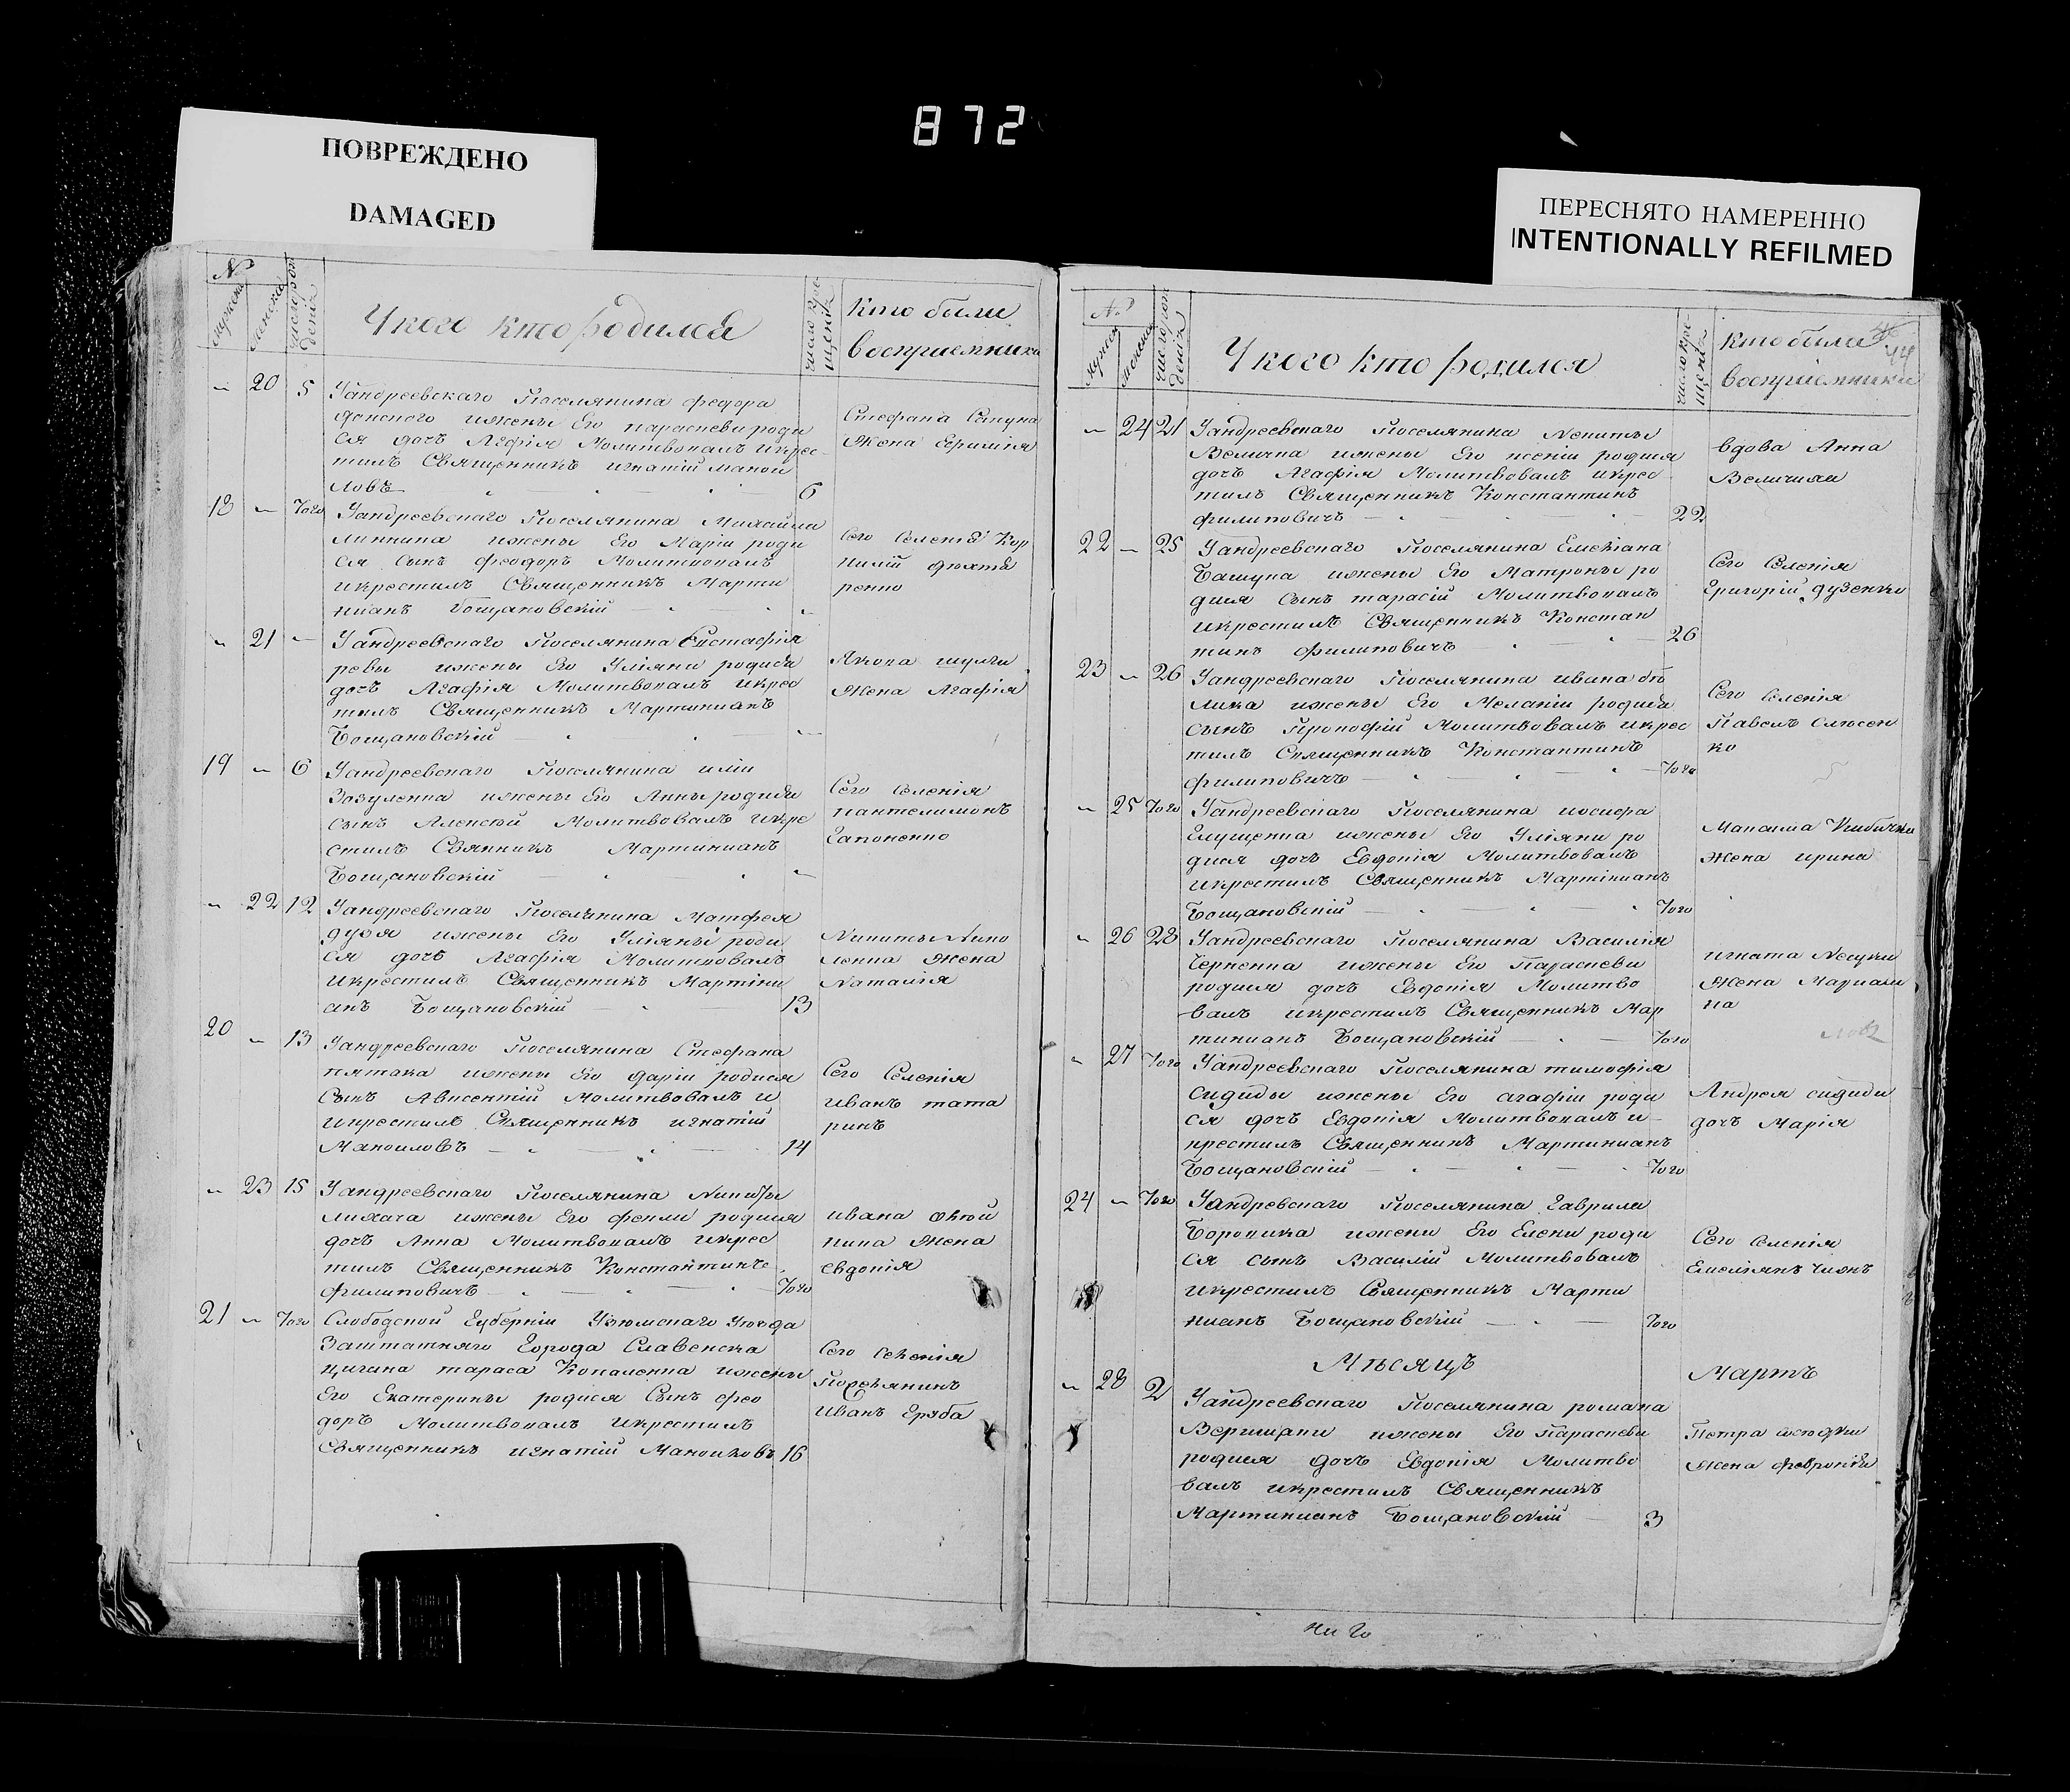 872
ПОВРЕЖДЕНО
DAMAGED
ПЕРЕСНЯТО НАМЕРЕННО
INTENTIONALLY REFILMED
№
мужеска
женска
число рож
денія
У кого кто родился
число кре
щенія
кто были
восприемники
20 5 Уандреевскаго Поселянина федора
донского ижены Его парасковеи роди
ся дочь Агафія Молитвовалъ икрес
тилъ Священникъ игнатій маной
ловъ 6
Стефана
жена
18 Того Уандреевскаго Поселянина Михаила
ижены Его Маріи роди
ся сынъ феодоръ Молитвовалъ
икрестилъ Священникъ Марти
ніанъ Бощановскій
Сего Селенія Кор
нилій дехтя
ренко
21 Уандреевскаго Поселянина Евстафія
ревы ижены Его Уліяни родися
дочь Агафія Молитвовалъ икрес
тилъ Священникъ Мартиніанъ
Бощановскій
Якова шулги
жена Агафія
19 6 Уандреевскаго Поселянина иліи
Зозуленка ижены Его Анны родися
сынъ Алексѣй Молитвовалъ икре
стилъ Свянникъ Мартиніанъ
Бощановскій
Сего Селенія
пантелимонъ
Гапоненко
22 12 Уандреевскаго Поселянина Матфея
дубя ижены Его Уліяны роди
ся дочь Агафія Молитвовалъ
икрестилъ Священникъ Мартині
анъ Бощановскій 13
Никиты
жена
Наталія
20 13 Уандреевскаго Поселянина Стефана
пятака ижены Его даріи родися
Сынъ Авксентій Молитвовалъ и
икрестилъ Священникъ игнатій
Маноиловъ 14
Сего Селенія
иванъ тата
ринъ
23 15 Уандреевскаго Поселянина Никиты
лихача ижены Его феклы родися
дочь Анна Молитвовалъ икрес
тилъ Священникъ Константинъ
филиповичъ Того
ивана
жена
Евдокія
21 Того Слободской Губерніи Узюмскаго Уезда
Заштатняго Города Славенска
цигана тараса Коваленка ижены
Его Екатерины родися Сынъ фео
доръ Молитвовалъ икрестилъ
Священникъ игнатій Маноиловъ 16
Сего Селенія
Поселянинъ
иванъ Гряба
№
мужеска
женска
число рож
денія
У кого кто родился
число кре
щенія
кто были
восприемники
44
24 21 Уандреевскаго Поселянина Никиты
Величка ижены Его ксеніи родися
дочь Агафія Молитвовалъ икрес
тилъ Священникъ Константинъ
филиповичъ 22
вдова Анна
22 25 Уандреевскаго Поселянина Емеліана
Башука ижены Его Матроны ро
дися сынъ тарасій Молитвовалъ
икрестилъ Священникъ Констан
тинъ филиповичъ 26
Сего Селенія
Григорій дузенко
23 26 Уандреевскаго Поселянина ивана бо
лика ижены Его Меланіи родися
сынъ Прокофій Молитвовалъ икрес
тилъ Священникъ Константинъ
филиповичъ Того
Сего Селенія
Павелъ Слюсен
ко
25 Того Уандреевскаго Поселянина иосифа
Глущенка ижены Его Уліяни ро
дися дочь Евдокія Молитвовалъ
икрестилъ Священникъ Мартиніанъ
Бощановскій Того
Максима
жена ирина
26 28 Уандреевскаго Поселянина Василія
Черненка ижены Его Парасковеи
родися дочь Евдокія Молитво
валъ икрестилъ Священникъ Мар
тиніанъ Бощановскій Того
игната
жена Маріам
на
27 Того Уандреевскаго Поселянина тимофія
Сидиды ижены Его агафіи роди
ся дочь Евдокія Молитвовалъ и
крестилъ Священникъ Мартиніанъ
Бощановскій Того
Андрея сидиди
дочь Марія
24 Того Уандреевскаго Поселянина Гаврила
Боровика ижени Его Елени роди
ся сынъ Василій Молитвовалъ
икрестилъ Священникъ Марти
ніанъ Бощановскій Того
Сего Селенія
Емеліянъ
Мѣсяцъ Мартъ
28 2 Уандреевскаго Поселянина романа
ижены Его Парасковеи
родися дочь Евдокія Молитво
валъ икрестилъ Священникъ
Мартиніанъ Бощановскій 3
Петра
жена февронія